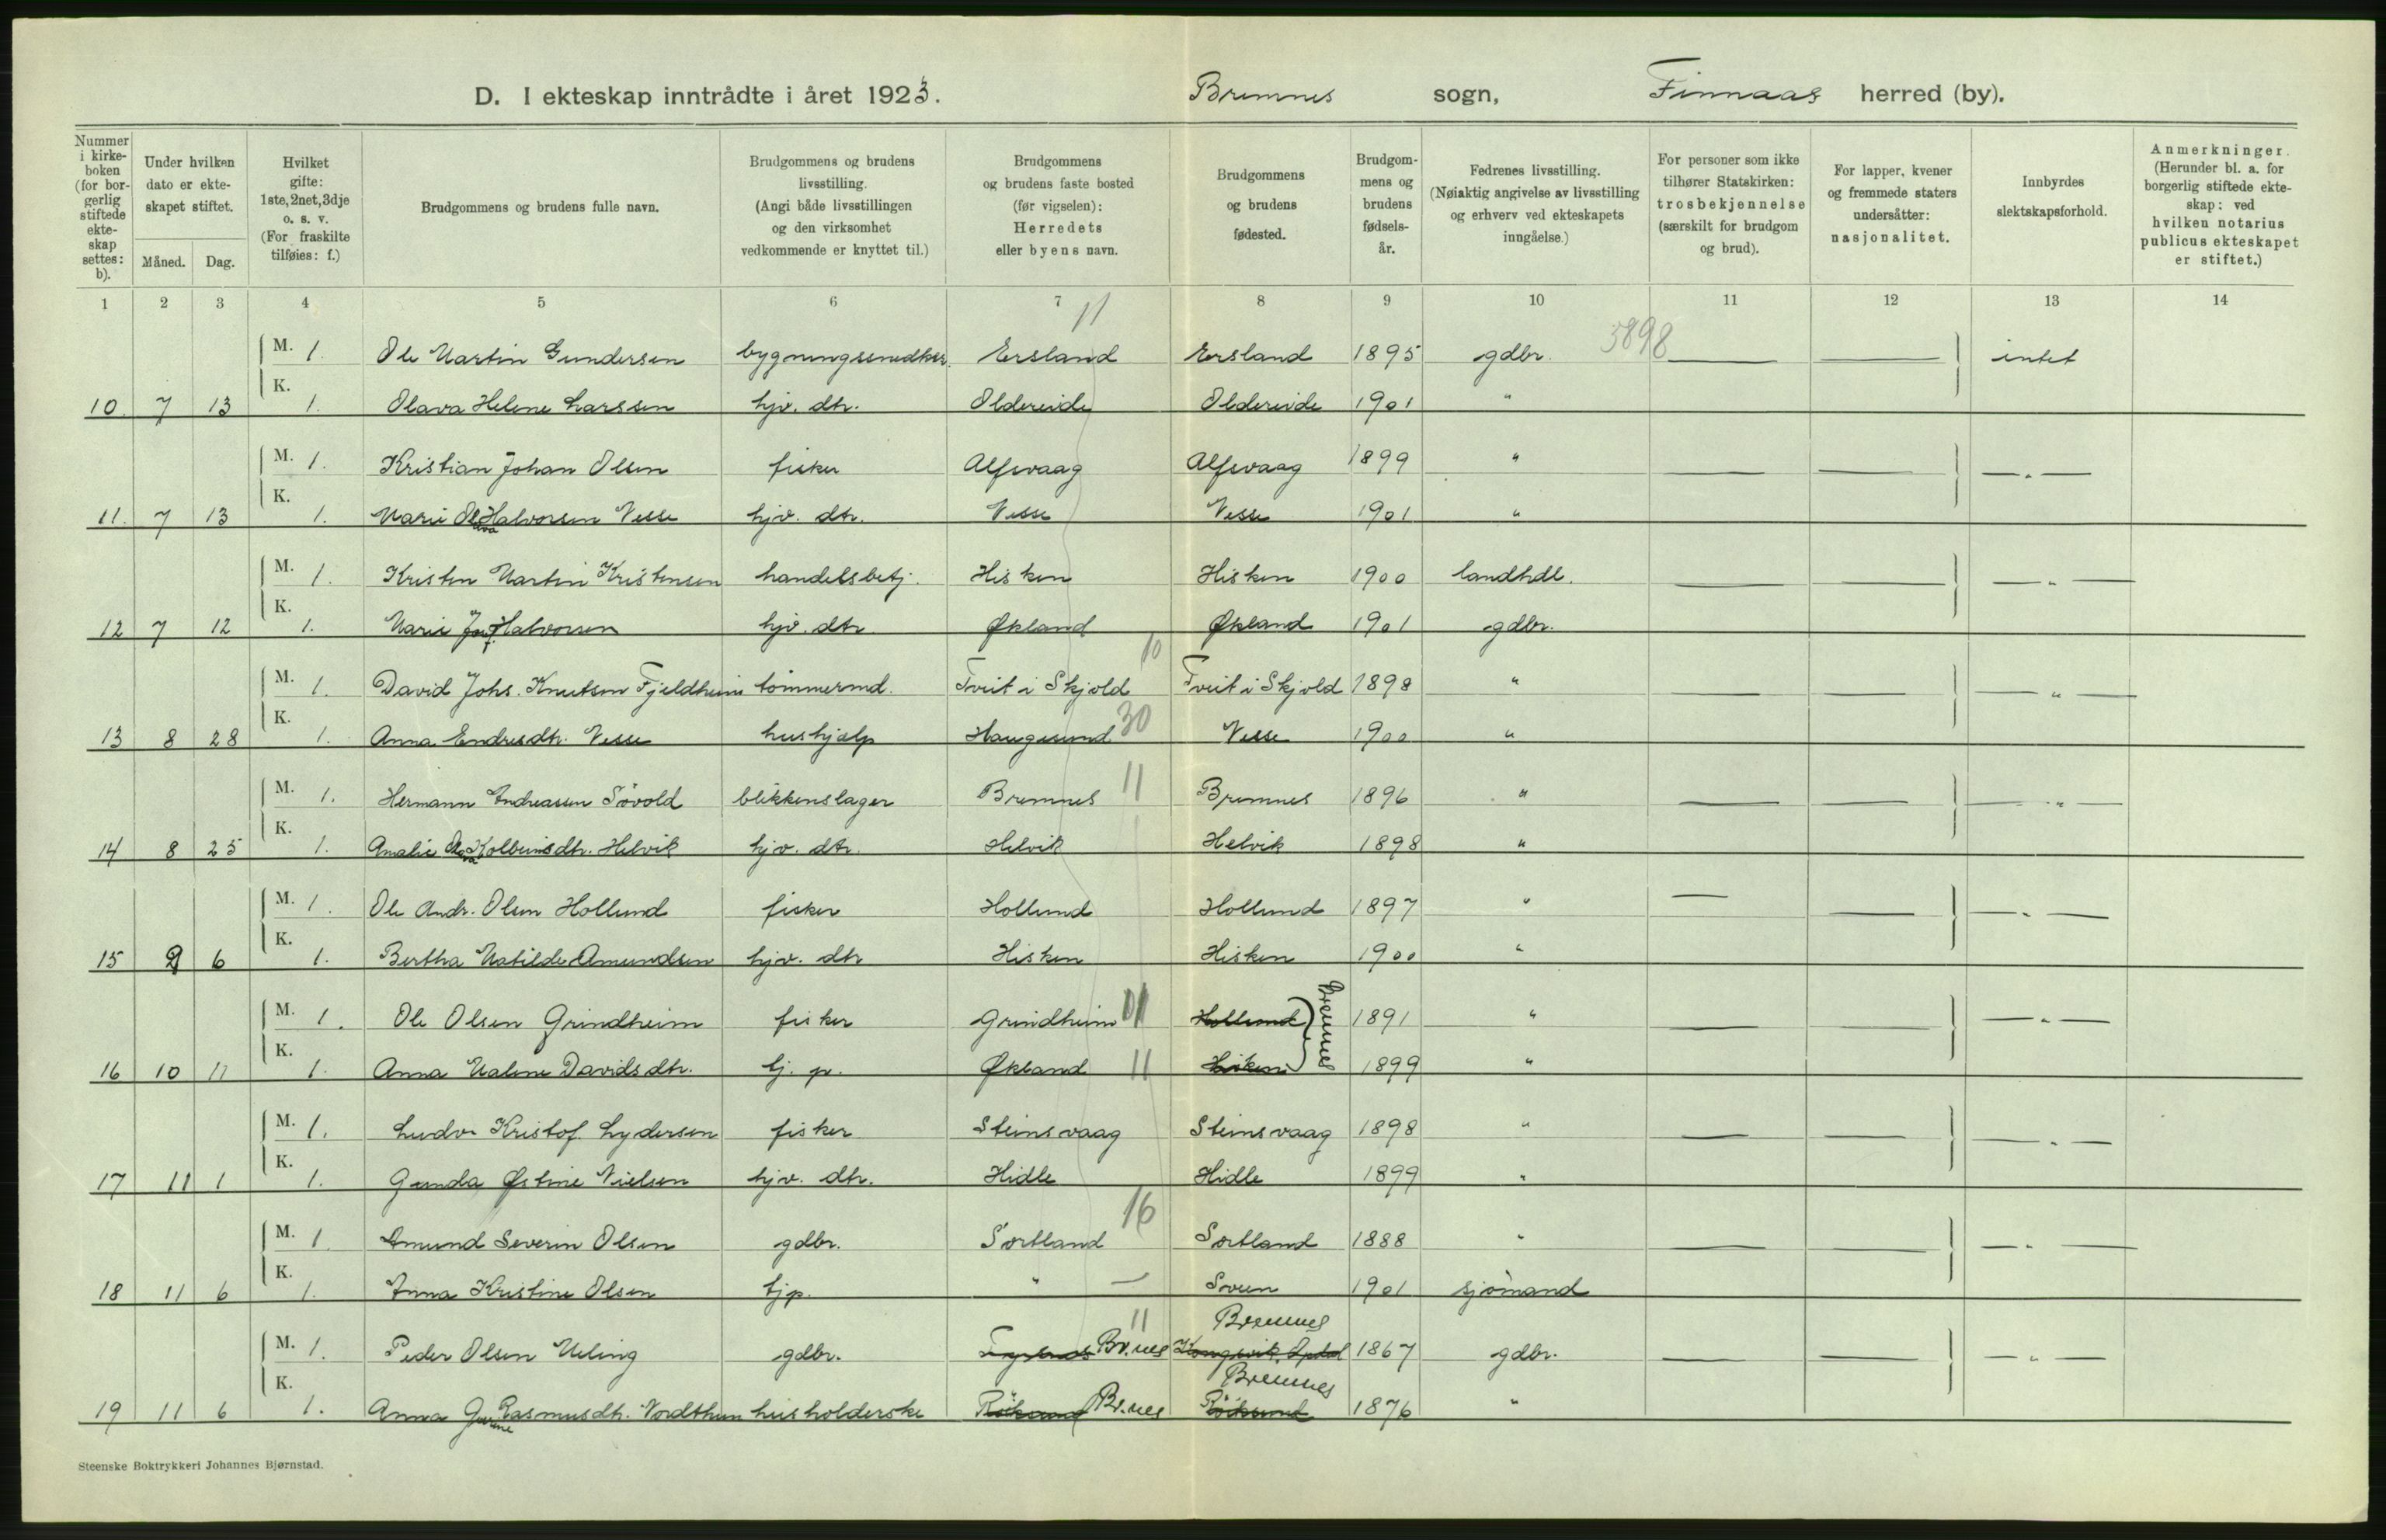 D. I ekteskap inntrådte i året 1923. Bremnes sogn, Finnaas herred (by).
Nummer i kirke-boken (for bor-gerlig stiftede ekte-skap settes: b).
Under hvilken dato er ekte-skapet stiftet.
Måned. Dag.
Hvilket gifte: 1ste, 2net, 3dje o. s. v. (For fraskilte tilføies: f.)
Brudgommens og brudens fulle navn.
Brudgommens og brudens livsstilling. (Angi både livsstillingen og den virksomhet vedkommende er knyttet til.)
Brudgommens og brudens faste bosted (før vigselen): Herredets eller byens navn.
Brudgommens og brudens fødested.
Brudgom-mens og brudens fødsels-år.
Fedrenes livsstilling. (Nøiaktig angivelse av livsstilling og erhverv ved ekteskapets inngåelse.)
For personer som ikke tilhører Statskirken: trosbekjennelse (særskilt for brudgom og brud).
For lapper, kvener og fremmede staters undersåtter: nasjonalitet.
Innbyrdes slektskapsforhold.
Anmerkninger. (Herunder bl. a. for borgerlig stiftede ekte-skap: ved hvilken notarius publicus ekteskapet er stiftet.)
1 2 3 4 5 6 7 8 9 10 11 12 13 14
11
M. 1. Ole Martin Gundersen bygningssnedker. Ersland Ersland 1895 gdbr. 5898 — — intet
K. 10. 7 13 1. Olava Helene Larssen hjv. dtr. Oldereide Oldereide 1901 "
M. 1. Kristian Johan Olsen fisker Alfsvaag Alfsvaag 1899 " — — — " —
K. 11. 7 13 1. Marie Olava Halvorsen Vesse hjv. dtr. Vesse Vesse 1901 "
M. 1. Kristen Martin Kristensen handelsbetj. Hisken Hisken 1900 landhdl. — — — " —
K. 12 7 12 1. Marie Halvorsen hjv. dtr. Økland Økland 1901 gdbr.
10
M. 1. David Johs. Knutsen Fjeldheim tömmermd. Tveit i Skjold Tveit i Skjold 1898 " — — — " —
K. 13 8 28 1. Anna Endresdtr. Vesse hushjælp Haugesund 30 Vesse 1900 "
M. 1. Hermann Andreassen Sövold blikkenslager Bremnes 11 Bremnes 1896 " — — — " —
K. 14 8 25 1. Amalie Olava Kolbeinsdtr. Helvik hjv. dtr. Helvik Helvik 1898 "
M. 1. Ole Andr. Olsen Hollund fisker Hollund Hollund 1897 " — — — " —
K. 15 9 6 1. Bertha Matilde Amundsen hjv. dtr. Hisken Hisken 1900 "
M. 1. Ole Olsen Grindheim fisker Grindheim 11 Hollund Bremnes 1891 " — — — " —
K. 16 10 11 1. Anna Malene Davidsdtr. tj. p. Økland 11 Hisken 1899 "
M. 1. Ludv. Kristof. Lydersen fisker Steinsvaag Steinsvaag 1898 " — — — " —
K. 17 11 1 1. Gunda Østine Nielsen hjv. dtr. Hidle Hidle 1899 "
16
M. 1. Amund Severin Olsen gdbr. Sortland Sortland 1888 " — — — " —
K. 18 11 6 1. Anna Kristine Olsen tjp. " — Sveen 1901 sjömand
11 Bremnes
M. 1. Peder Olsen Meling gdbr. Br.nes 1867 gdbr. — — — " —
Bremnes
K. 19 11 6 1. Anna Gurine Rasmusdtr. husholderske Röksund Br.nes Röksund 1876 "
Steenske Boktrykkeri Johannes Bjørnstad.